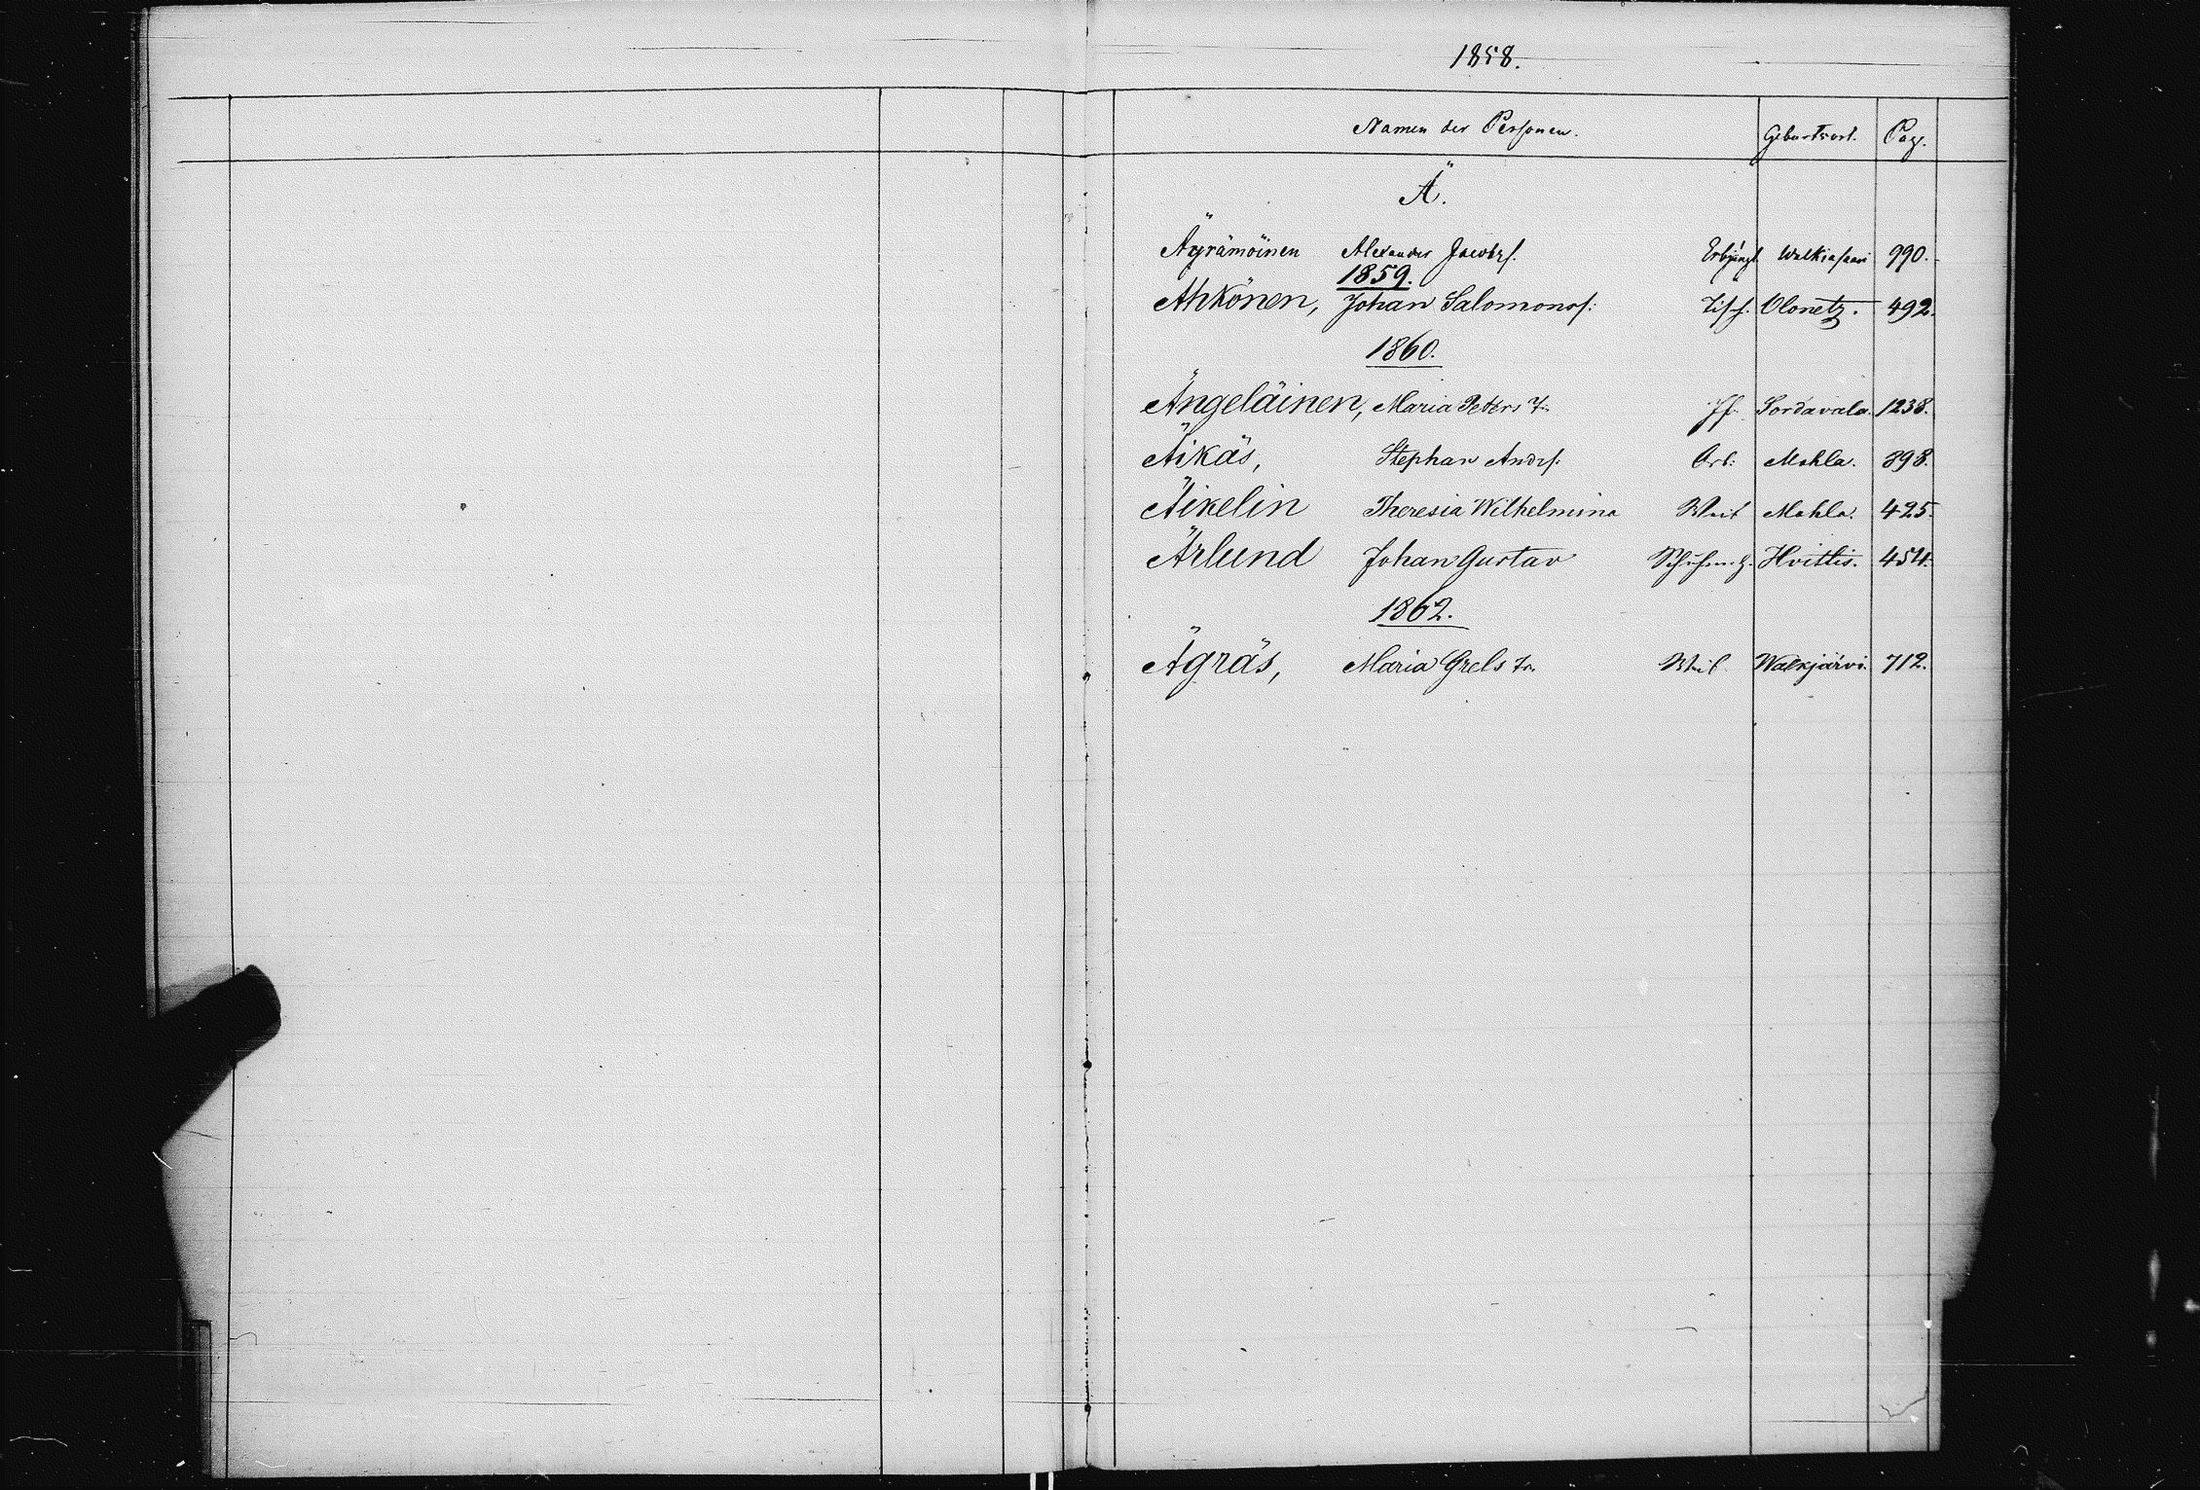 1858.
Namen der Personen. Geburtsort. Pag.
Ä.
Äyrämöinen Alexander Jacobs. Walkiasaari 990.
1859.
Ahkönen, Johan Salomons: Tisch. Olonetz. 492.
1860.
Ängeläinen, Maria Peters Tr. Jf. Sordavala. 1238.
Äikäs, Stephan Ands: Arb: Mohla. 898.
Äikelin Theresia Wilhelmina Weib Mohla. 425.
Ärlund Johan Gustav Hvittis. 454.
1862.
Ägräs, Maria Grels Tr. Weib Walkjärvi. 712.